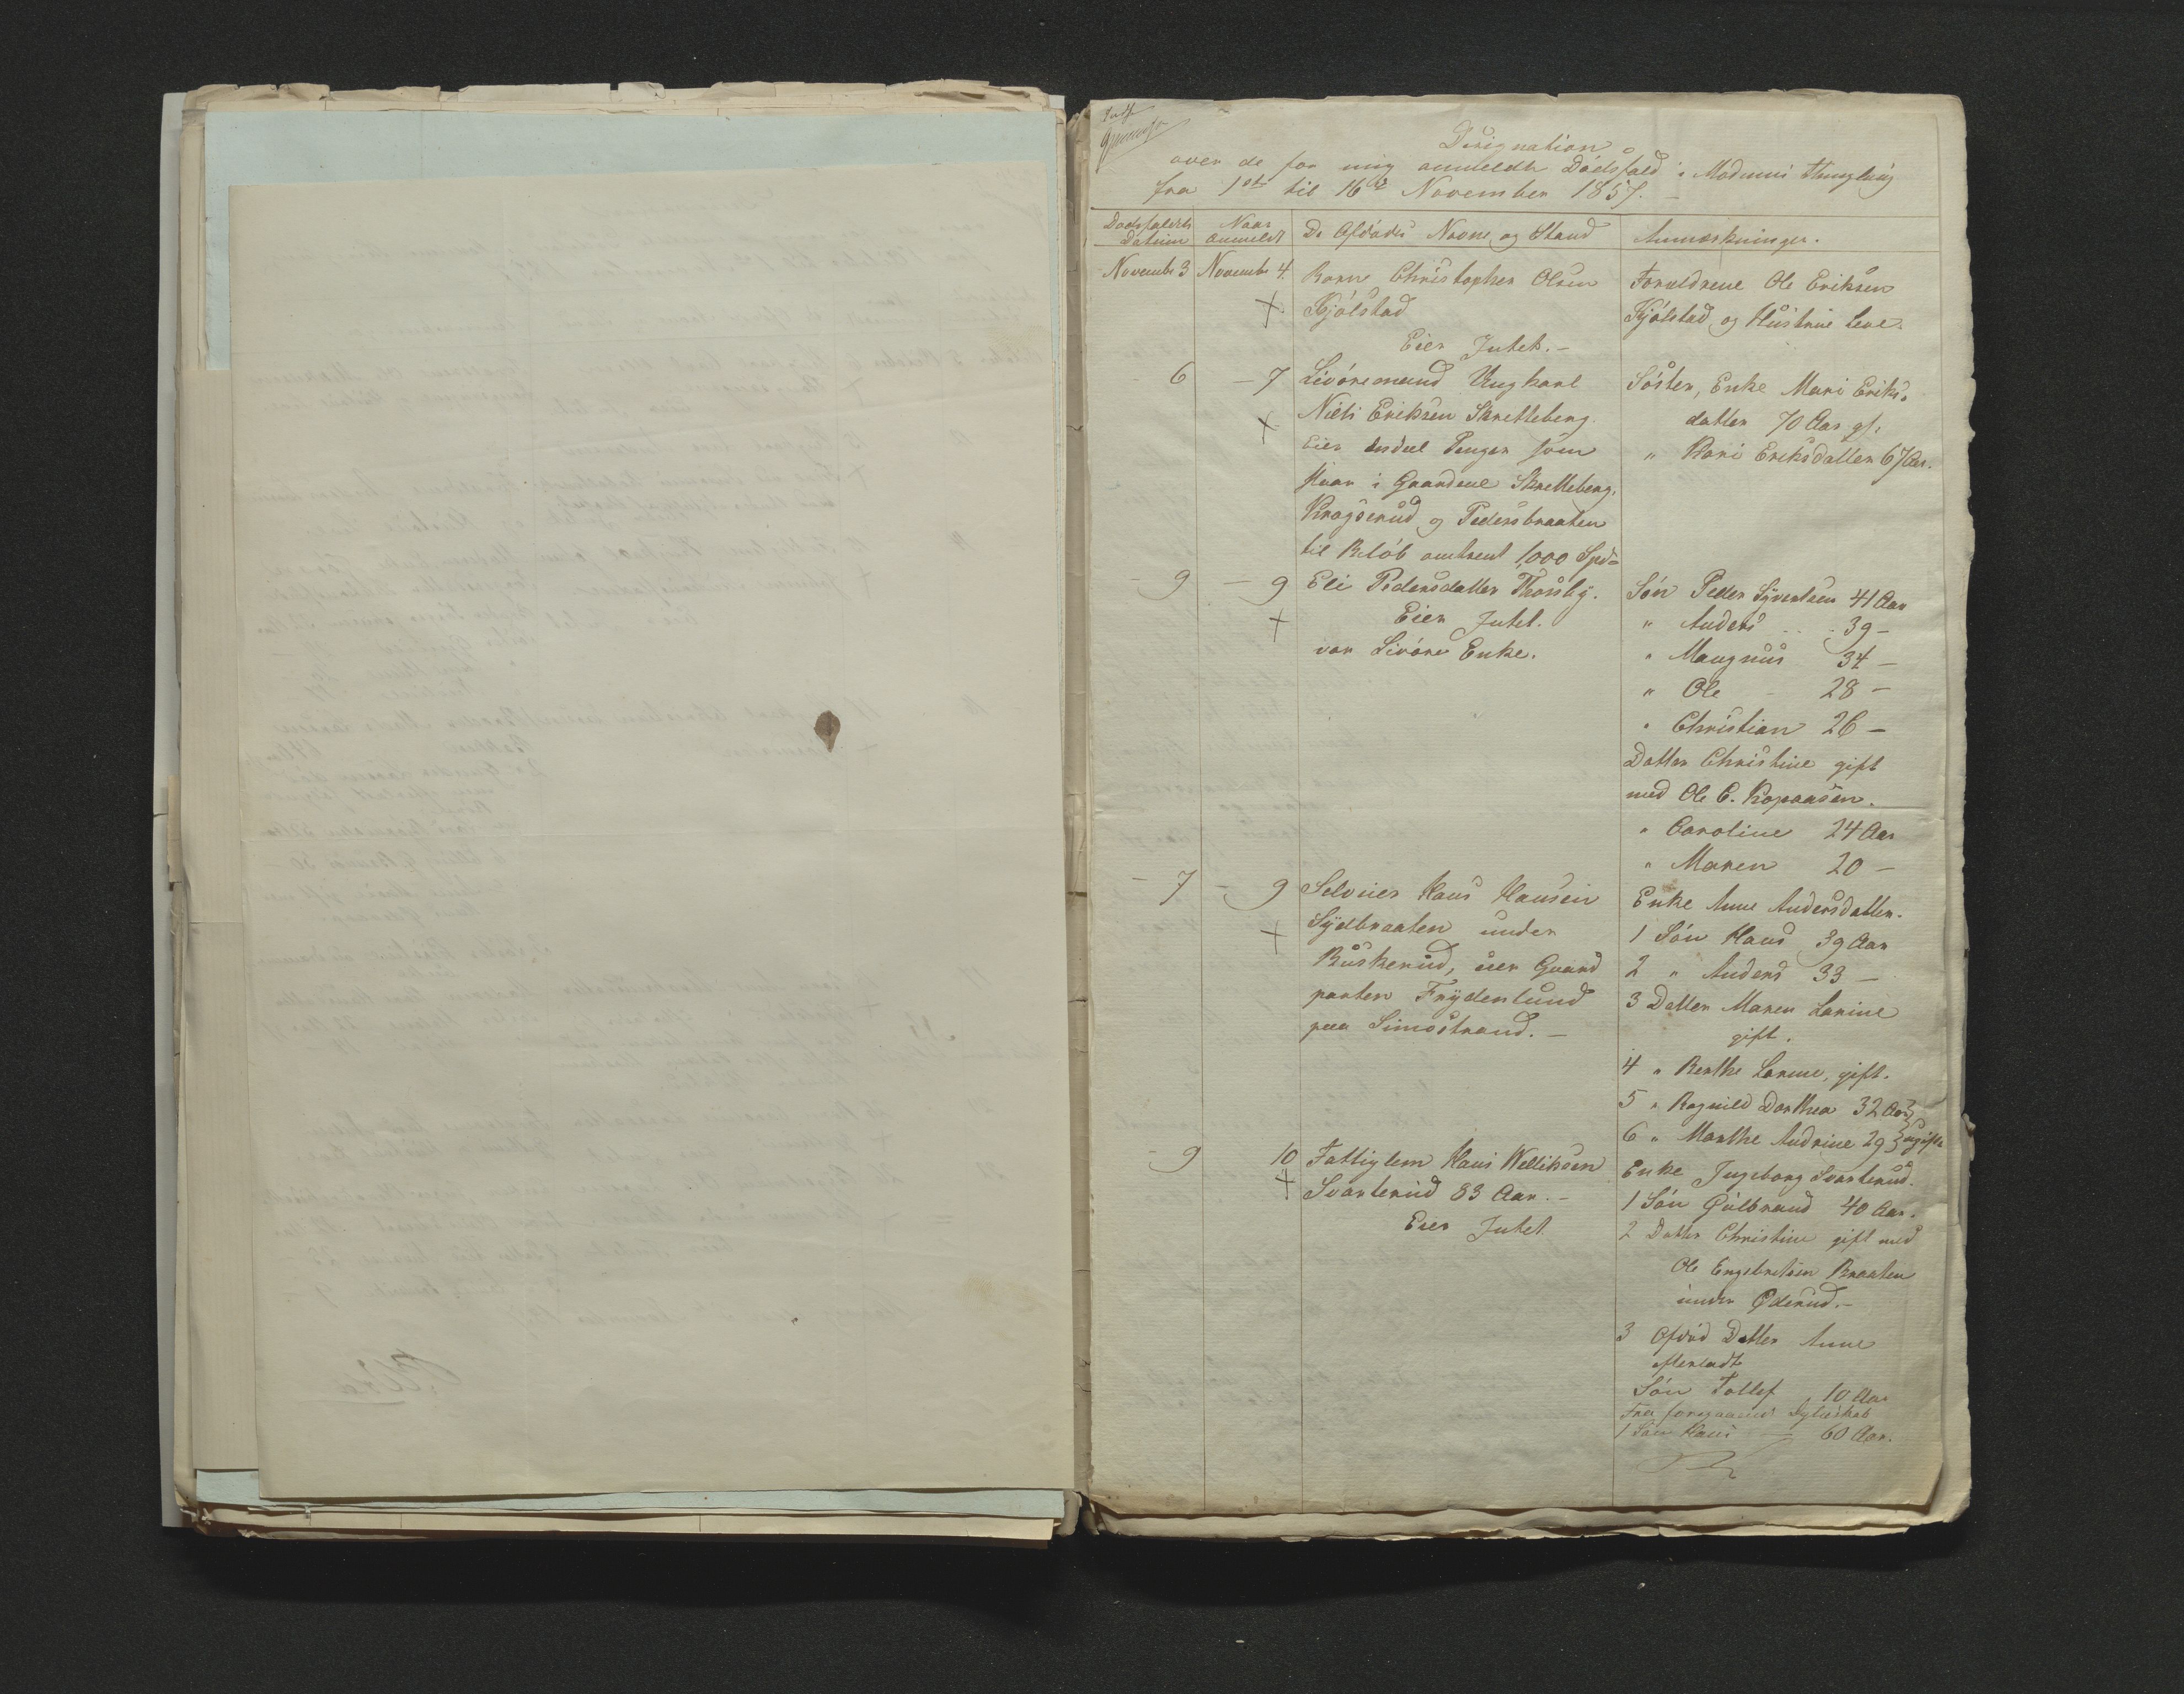 Designation
over de for mig anmeldte Dödsfald i Modums Thinglaug
fra 1ste til 16de November 1857.
Dödsfaldets Datum
Naar anmeldt
De Afdödes Navne og Stand
Anmærkninger.
Novembr 3 Novembr 4. Barn Christopher Olsen
Kjölstad
Eier Intet. -
Forældrene Ole Eriksen
Kjölstad og Hustrue leve.
6 - 7 Livöremand Ungkarl
Niels Eriksen Skretteberg
Eier endeel Penger som
staar i Gaardene Skretteberg,
Kragserud og Pedersbraaten
til Belöb omtrent 1,000 Spd
Söster, Enke Mari Eriks-
datter 70 Aar gl.
" Kari Eriksdatter 67 Aar.
- 9 - 9 Eli Pedersdatter Thorsby.
Eier Intet.
var Livörs Enke.
Sön Peder Syvertsen 41 Aar
" Anders 39 -
" Maugnus 34 -
" Ole - 28 -
" Christian 26 -
Datter Christine gift
med Ole C. Kopaasen.
" Caroline 24 Aar
" Maren 20 -
- 7 - 9 Selveier Hans Hansen
Sydbraaten under
Buskerud, eier Gaard
parten Frydenlund
paa Simostrand. -
Enke Anne Andersdatter.
1 Sön Hans 39 Aar
2 " Anders 33 -
3 Datter Maren Larine
gift.
4 " Berthe Lorine, gift.
5 " Ragnild Dorthea 32 Aar
6 " Marthe Andrine 29 ugifte
- 9 10 Fattiglem Hans Welliksen
Svarterud 83 Aar. -
Eier Intet
Enke Ingeborg Svarterud.
1 Sön Gulbrand 40 Aar.
2 Datter Christine gift med
Ole Engebretsen Braaten
under Öderud. -
3 Afdöd Datter Anne
efterladt
Sön Tollef 10 Aar
Fra foregaaende Egteskab
1 Sön Hans - 60 Aar.